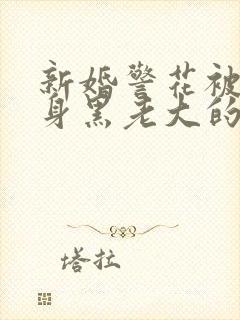 新婚警花被
身黑老大的
塔拉